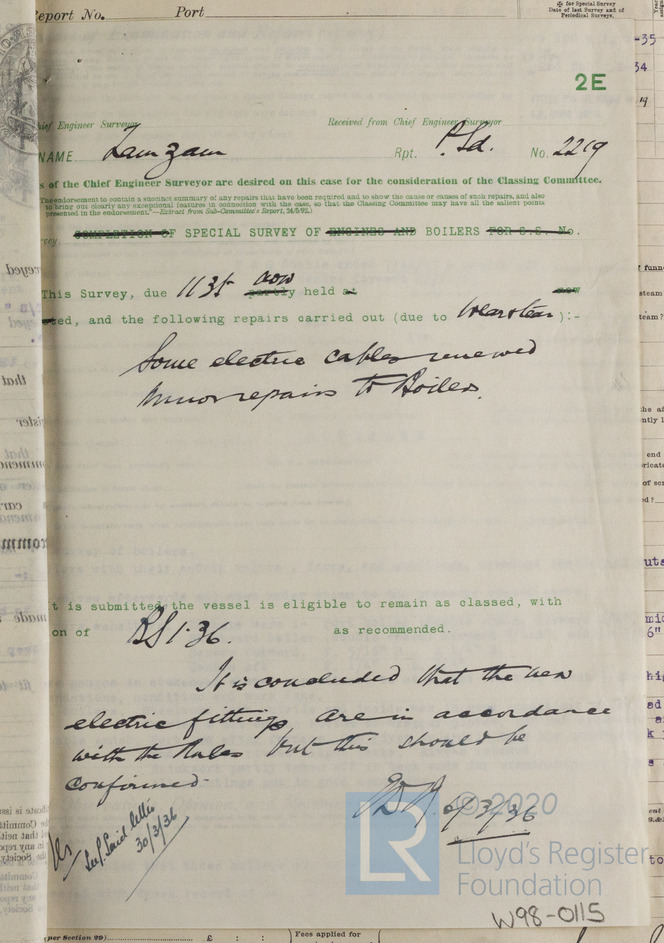 Report No. Port
for Special Survey
Date of last Survey and of
Periodical Surveys.
-35
34
2E
hief Engineer Surveyor
Received from Chief Engineer Surveyor
NAME Zamzam Rpt. P.Sd. No. 2219
s of the Chief Engineer Surveyor are desired on this case for the consideration of the Classing Committee.
The endorsement to contain a succinct summary of any repairs that have been required and to show the cause or causes of such repairs, and also
to bring out clearly any exceptional features in connection with the case, so that the Classing Committee may have all the salient points
presented in the endorsement."—Extract from Sub-Committee's Report,
COMPLETION OF SPECIAL SURVEY OF ENGINES AND BOILERS FOR S.S. No.
vey.
This Survey, due 11 35 now partly held at now
ted, and the following repairs carried out (due to wear & tear ):-
Some electric cables renewed
Minor repairs to Boilers.
t is submitted the vessel is eligible to remain as classed, with
on of BS 1.36. as recommended.
It is concluded that the new
electric fittings are in accordance
with the Rules but this should be
confirmed
/3/36
30/3/36
© 2020
LR
Lloyd's Register
Foundation
W98-0115
per Section 29) £ : : Fees applied for